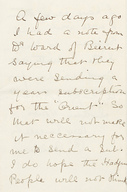 A few days ago
I had a note from
Dr Ward of Beirut
Saying that they
were sending a
years subscription
for the "Orient". So
that will not make
it neccessary for
me to send a Sub.
I do hope the
People will not think